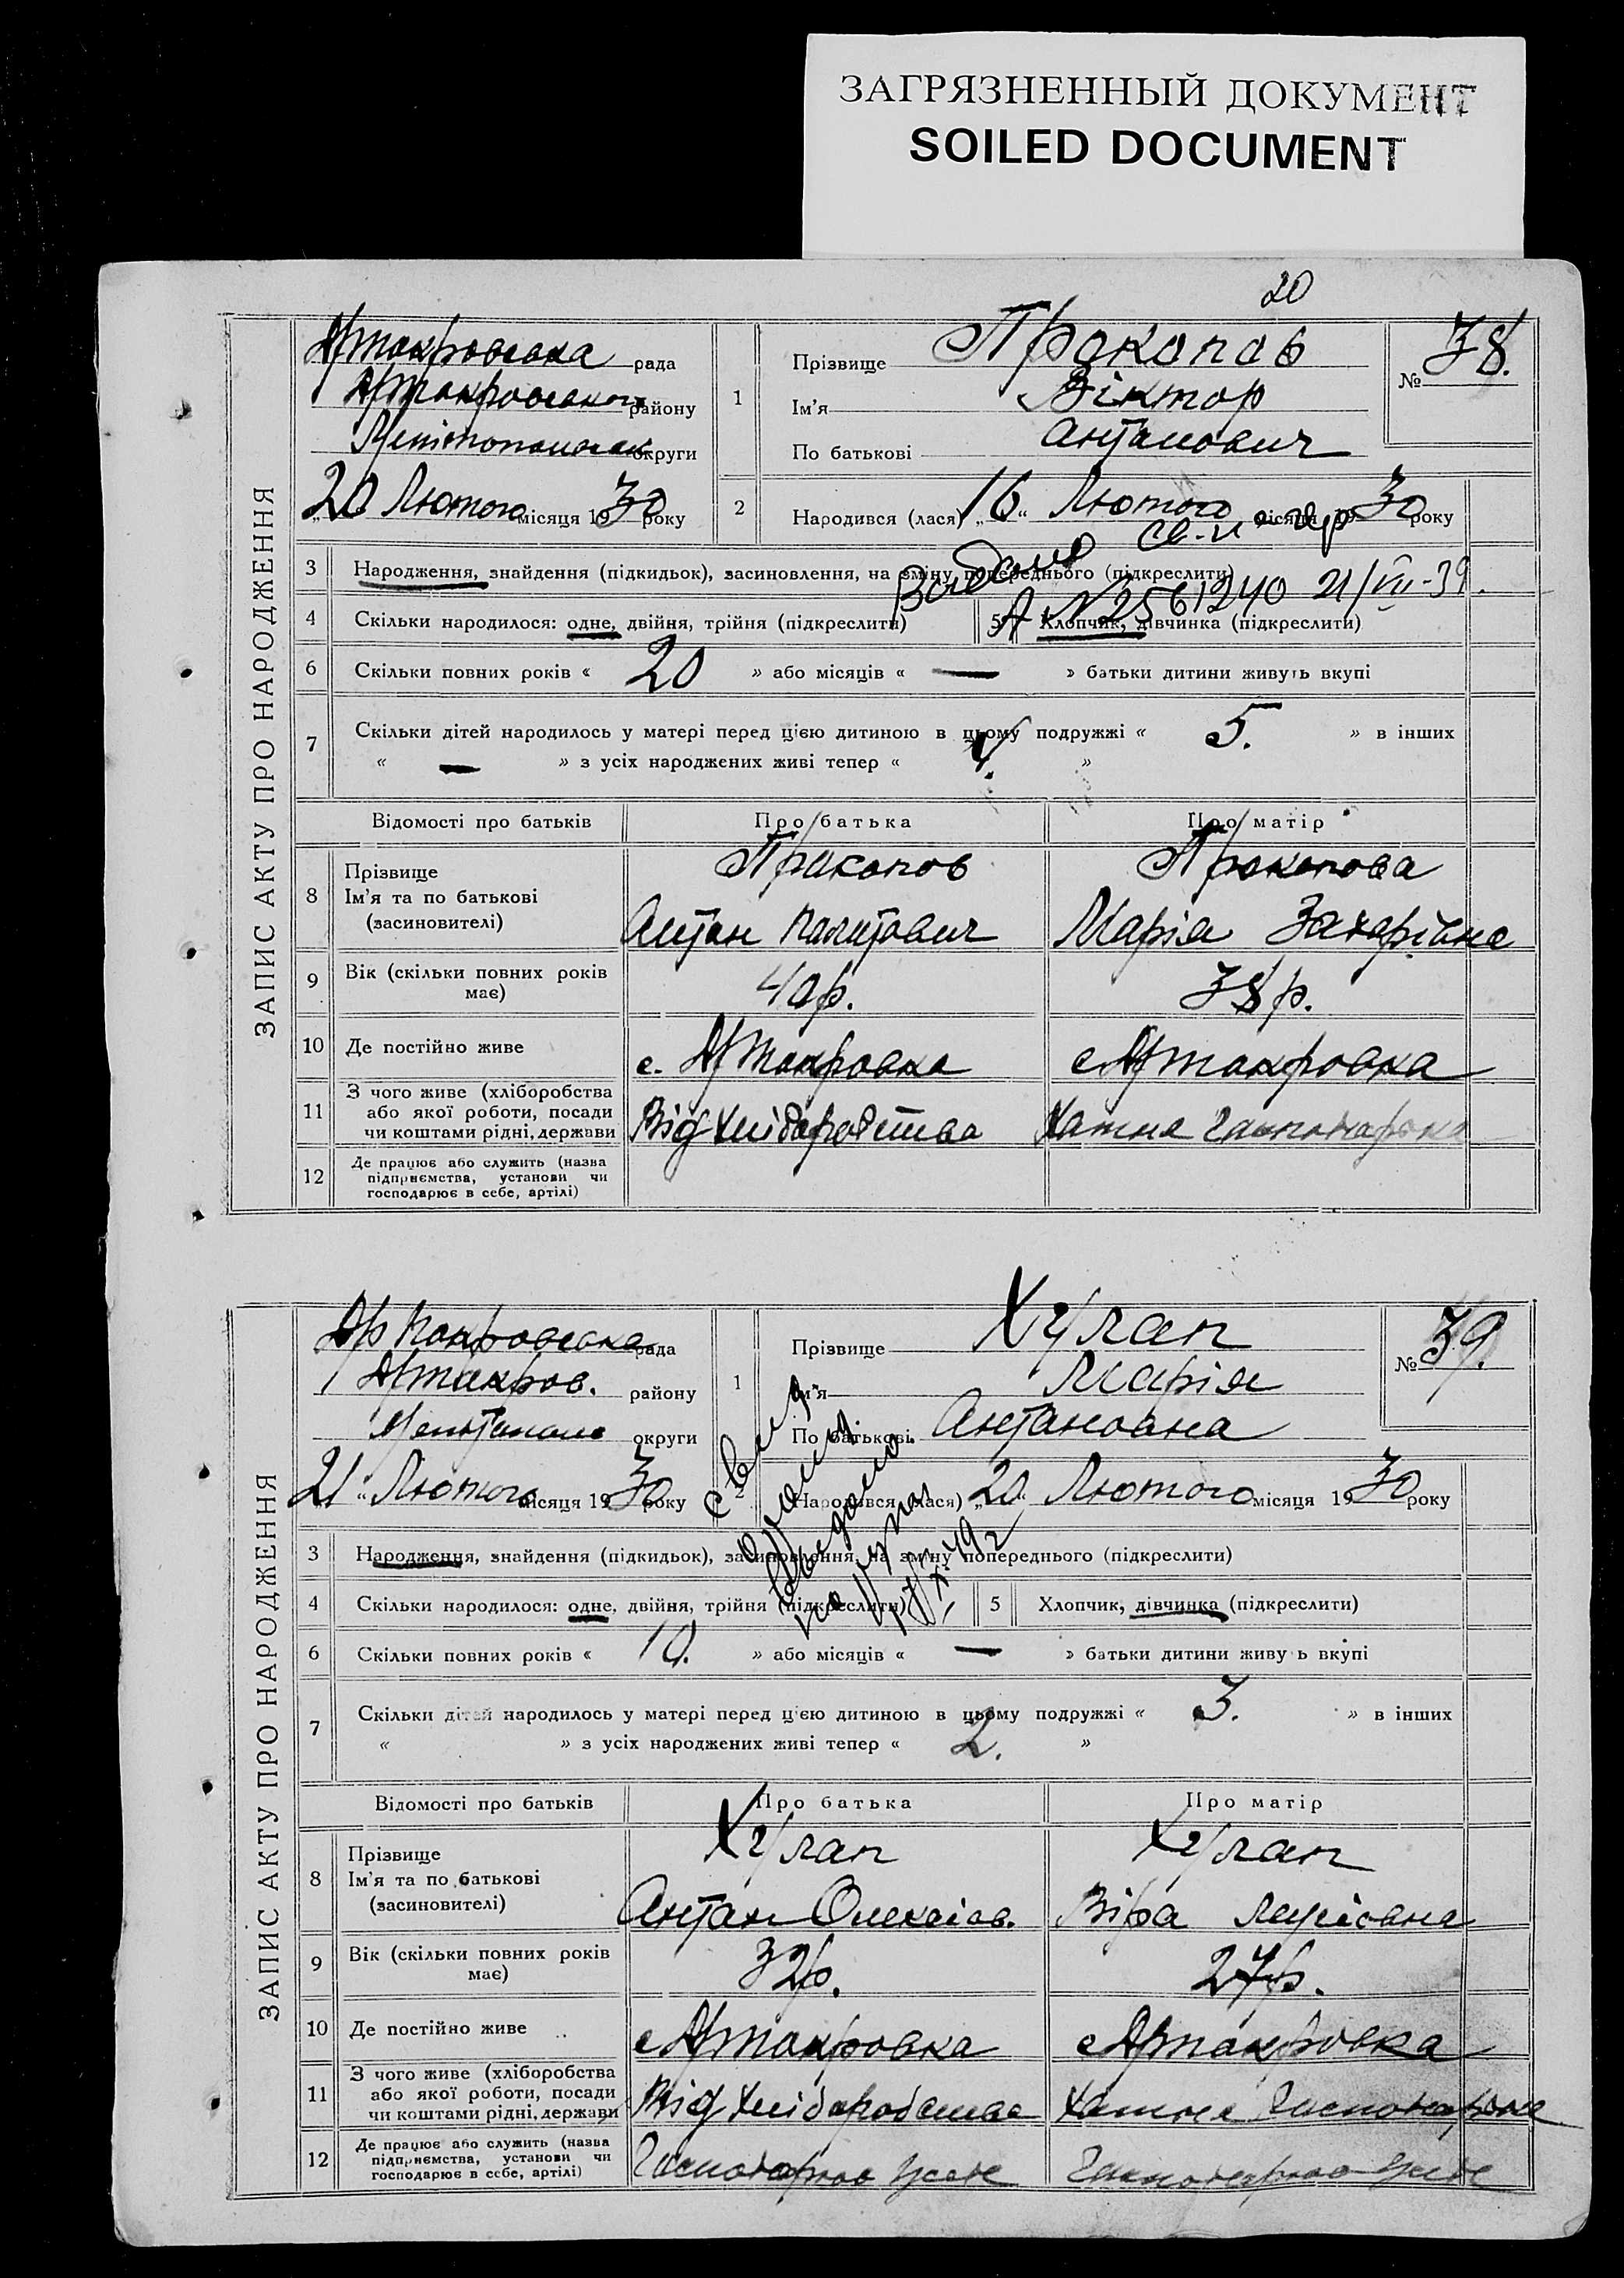 ЗАГРЯЗНЕННЫЙ ДОКУМЕНТ
SOILED DOCUMENT
20
ЗАПИС АКТУ ПРО НАРОДЖЕННЯ
рада
району
округи
20 Лютого місяця 1930 року
1
Прізвище Прокопов
Ім'я Віктор
По батькові Антонович
№ 38.
2
Народився (лася) „16“ Лютого місяця 1930 року
3 Народження, знайдення (підкидьок), засиновлення, на зміну попереднього (підкреслити)
А № 2561240 21/VII-39.
4 Скільки народилося: одне, двійня, трійня (підкреслити)
5 Хлопчик, дівчинка (підкреслити)
6 Скільки повних років « 20 » або місяців « — » батьки дитини живуть вкупі
7 Скільки дітей народилось у матері перед цією дитиною в цьому подружжі « 5. » в інших
« — » з усіх народжених живі тепер « 4. »
Відомості про батьків Про батька Про матір
8 Прізвище Прокопов Прокопова
Ім'я та по батькові
(засиновителі) Антон Марія Захарівна
9 Вік (скільки повних років має) 40 р. 38 р.
10 Де постійно живе
11 З чого живе (хліборобства
або якої роботи, посади
чи коштами рідні, держави Від хліборобства Хатня
12 Де працює або служить (назва
підприємства, установи чи
господарює в себе, артілі)
ЗАПИС АКТУ ПРО НАРОДЖЕННЯ
рада
району
округи
21 Лютого місяця 1930 року
1
Прізвище Хулап
Ім'я Марія
По батькові Антоновна
№ 39.
2
Народився (лася) „20“ Лютого місяця 1930 року
3 Народження, знайдення (підкидьок), засиновлення, на зміну попереднього (підкреслити)
4 Скільки народилося: одне, двійня, трійня (підкреслити)
5 Хлопчик, дівчинка (підкреслити)
6 Скільки повних років « 10. » або місяців « — » батьки дитини живуть вкупі
7 Скільки дітей народилось у матері перед цією дитиною в цьому подружжі « 3. » в інших
« » з усіх народжених живі тепер « 2. »
Відомості про батьків Про батька Про матір
8 Прізвище Хулап Хулап
Ім'я та по батькові
(засиновителі) Антон Олексіов. Віра
9 Вік (скільки повних років має) 32 р. 27 р.
10 Де постійно живе
11 З чого живе (хліборобства
або якої роботи, посади
чи коштами рідні, держави Від хліборобства Хатня
12 Де працює або служить (назва
підприємства, установи чи
господарює в себе, артілі)